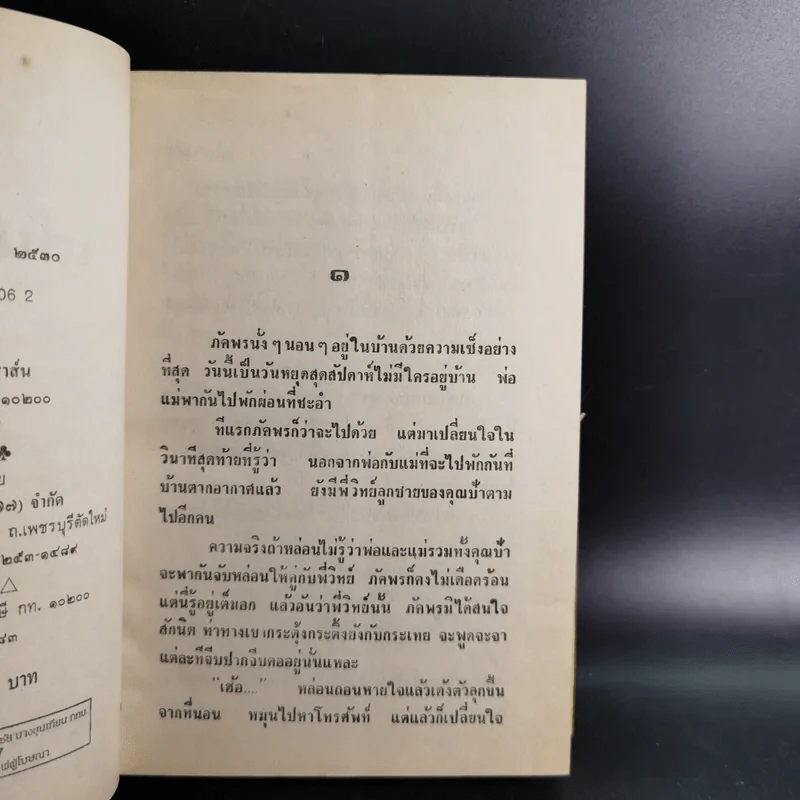 ๒๕๓๐
06 2
าส์น
๑๐๒๐๐
ย
๑๗) จำกัด
ถ.เพชรบุรีตัดใหม่
๒๕๓-๑๔๘๙
กท. ๑๐๒๐๐
๘๓
บาท
บางขุนเทียน กทม.
ผู้โฆษณา
๑
ภัคพรนั่ง ๆ นอน ๆ อยู่ในบ้านด้วยความเซ็งอย่าง
ที่สุด วันนี้เป็นวันหยุดสุดสัปดาห์ไม่มีใครอยู่บ้าน พ่อ
แม่พากันไปพักผ่อนที่ชะอำ
ทีแรกภัคพรก็ว่าจะไปด้วย แต่มาเปลี่ยนใจใน
วินาทีสุดท้ายที่รู้ว่า นอกจากพ่อกับแม่ที่จะไปพักกันที่
บ้านตากอากาศแล้ว ยังมีพี่วิทย์ลูกชายของคุณป้าตาม
ไปอีกคน
ความจริงถ้าหล่อนไม่รู้ว่าพ่อและแม่รวมทั้งคุณป้า
จะพากันจับหล่อนให้คู่กับพี่วิทย์ ภัคพรก็คงไม่เดือดร้อน
แต่นี่รู้อยู่เต็มอก แล้วอันว่าพี่วิทย์นั้น ภัคพรมิได้สนใจ
สักนิด ท่าทางเขากระตุ้งกระติ้งยังกับกระเทย จะพูดจะจา
แต่ละทีจีบปากจีบคออยู่นั่นแหละ
"เฮ้อ...." หล่อนถอนหายใจแล้วเด้งตัวลุกขึ้น
จากที่นอน หมุนไปหาโทรศัพท์ แต่แล้วก็เปลี่ยนใจ